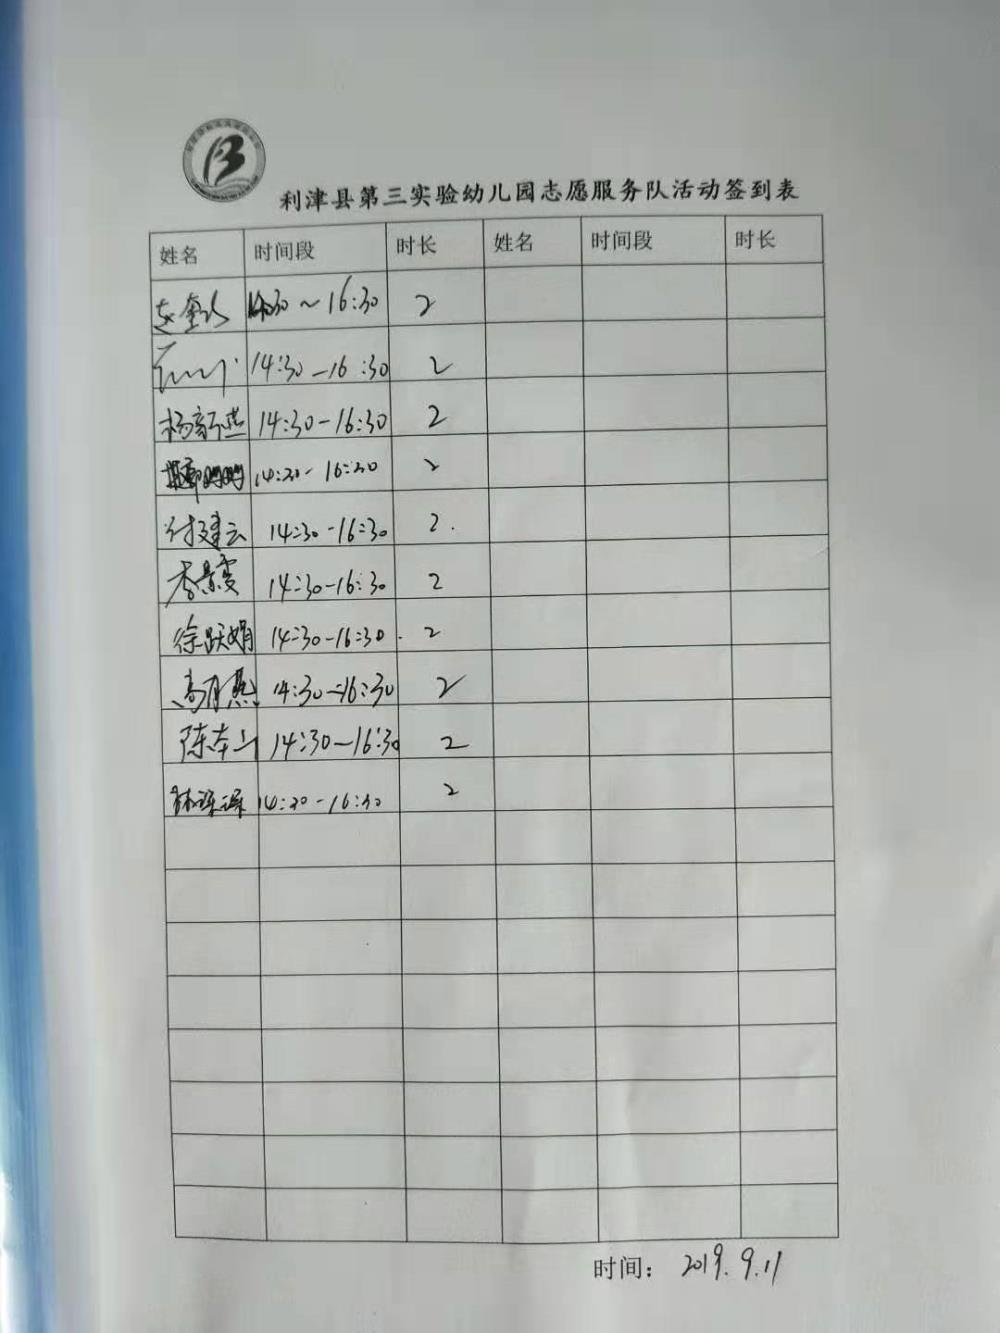 利津县第三实验幼儿园志愿服务队活动签到表
姓名 时间段 时长 姓名 时间段 时长
30 ~ 16:30 2
14:30 — 16:30 2
杨新燕 14:30 - 16:30 2
14:30 - 16:30 2
付建云 14:30 - 16:30 2.
李景雯 14:30 - 16:30 2
徐跃娟 14:30 - 16:30. 2
高月燕 14:30 — 16:30 2
陈 14:30 — 16:30 2
林 14:30 - 16:30 2
时间: 2019.9.11